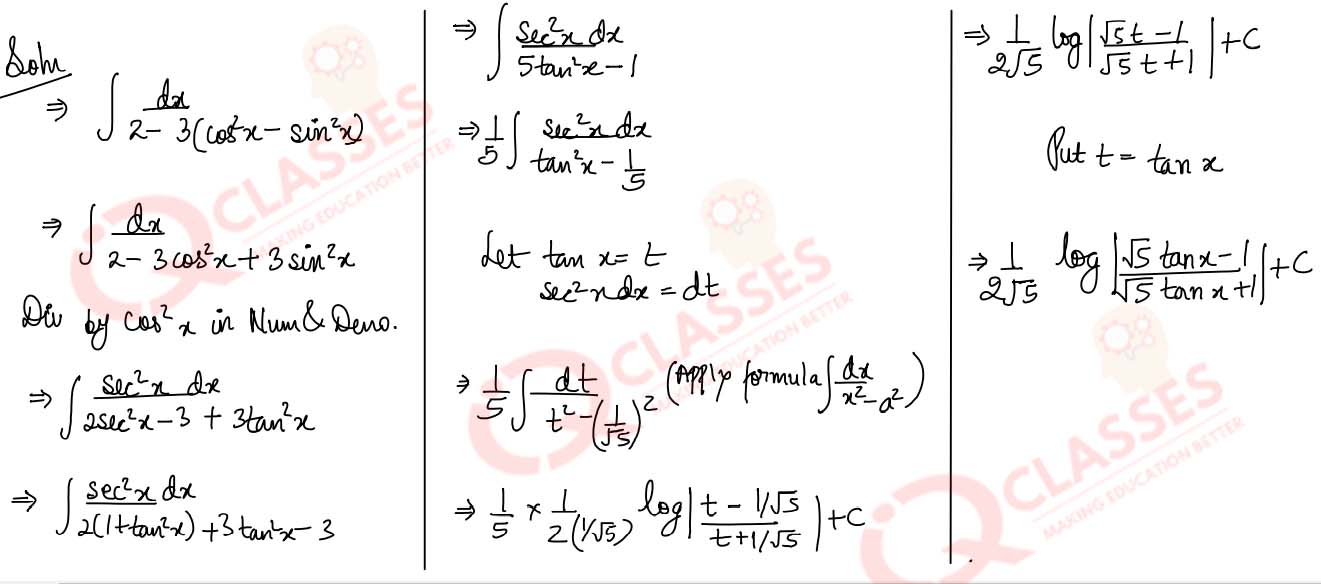 Soln
⇒ ∫ dx / 2 - 3(cos²x - sin²x)
⇒ ∫ dx / 2 - 3cos²x + 3sin²x
Div by cos²x in Num & Deno.
⇒ ∫ sec²x dx / 2sec²x - 3 + 3tan²x
⇒ ∫ sec²x dx / 2(1+tan²x) + 3tan²x - 3
⇒ ∫ sec²x dx / 5tan²x - 1
⇒ 1/5 ∫ sec²x dx / tan²x - 1/5
Let tan x = t
sec²x dx = dt
⇒ 1/5 ∫ dt / t² - (1/√5)² (Apply formula ∫ dx / x² - a²)
⇒ 1/5 × 1/2(1/√5) log | t - 1/√5 / t + 1/√5 | + C
⇒ 1/2√5 log | √5t - 1 / √5t + 1 | + C
Put t = tan x
⇒ 1/2√5 log | √5 tanx - 1 / √5 tanx + 1 | + C
IQ CLASSES
MAKING EDUCATION BETTER
IQ CLASSES
MAKING EDUCATION BETTER
IQ CLASSES
MAKING EDUCATION BETTER